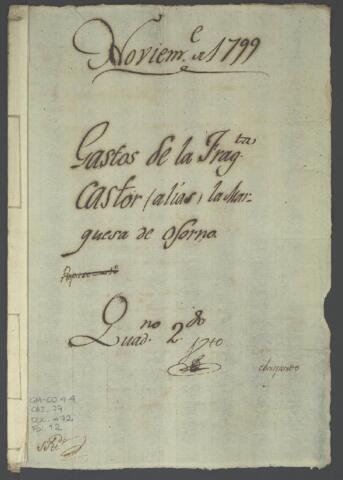 Noviem.e de 1799
Gastos de la Frag.ta
Castor (alias) la Mar-
quesa de Osorno.
Quad.no 2.do
1710
GM-CO 44
CAJ. 79
DOC. 472
FOL. 12